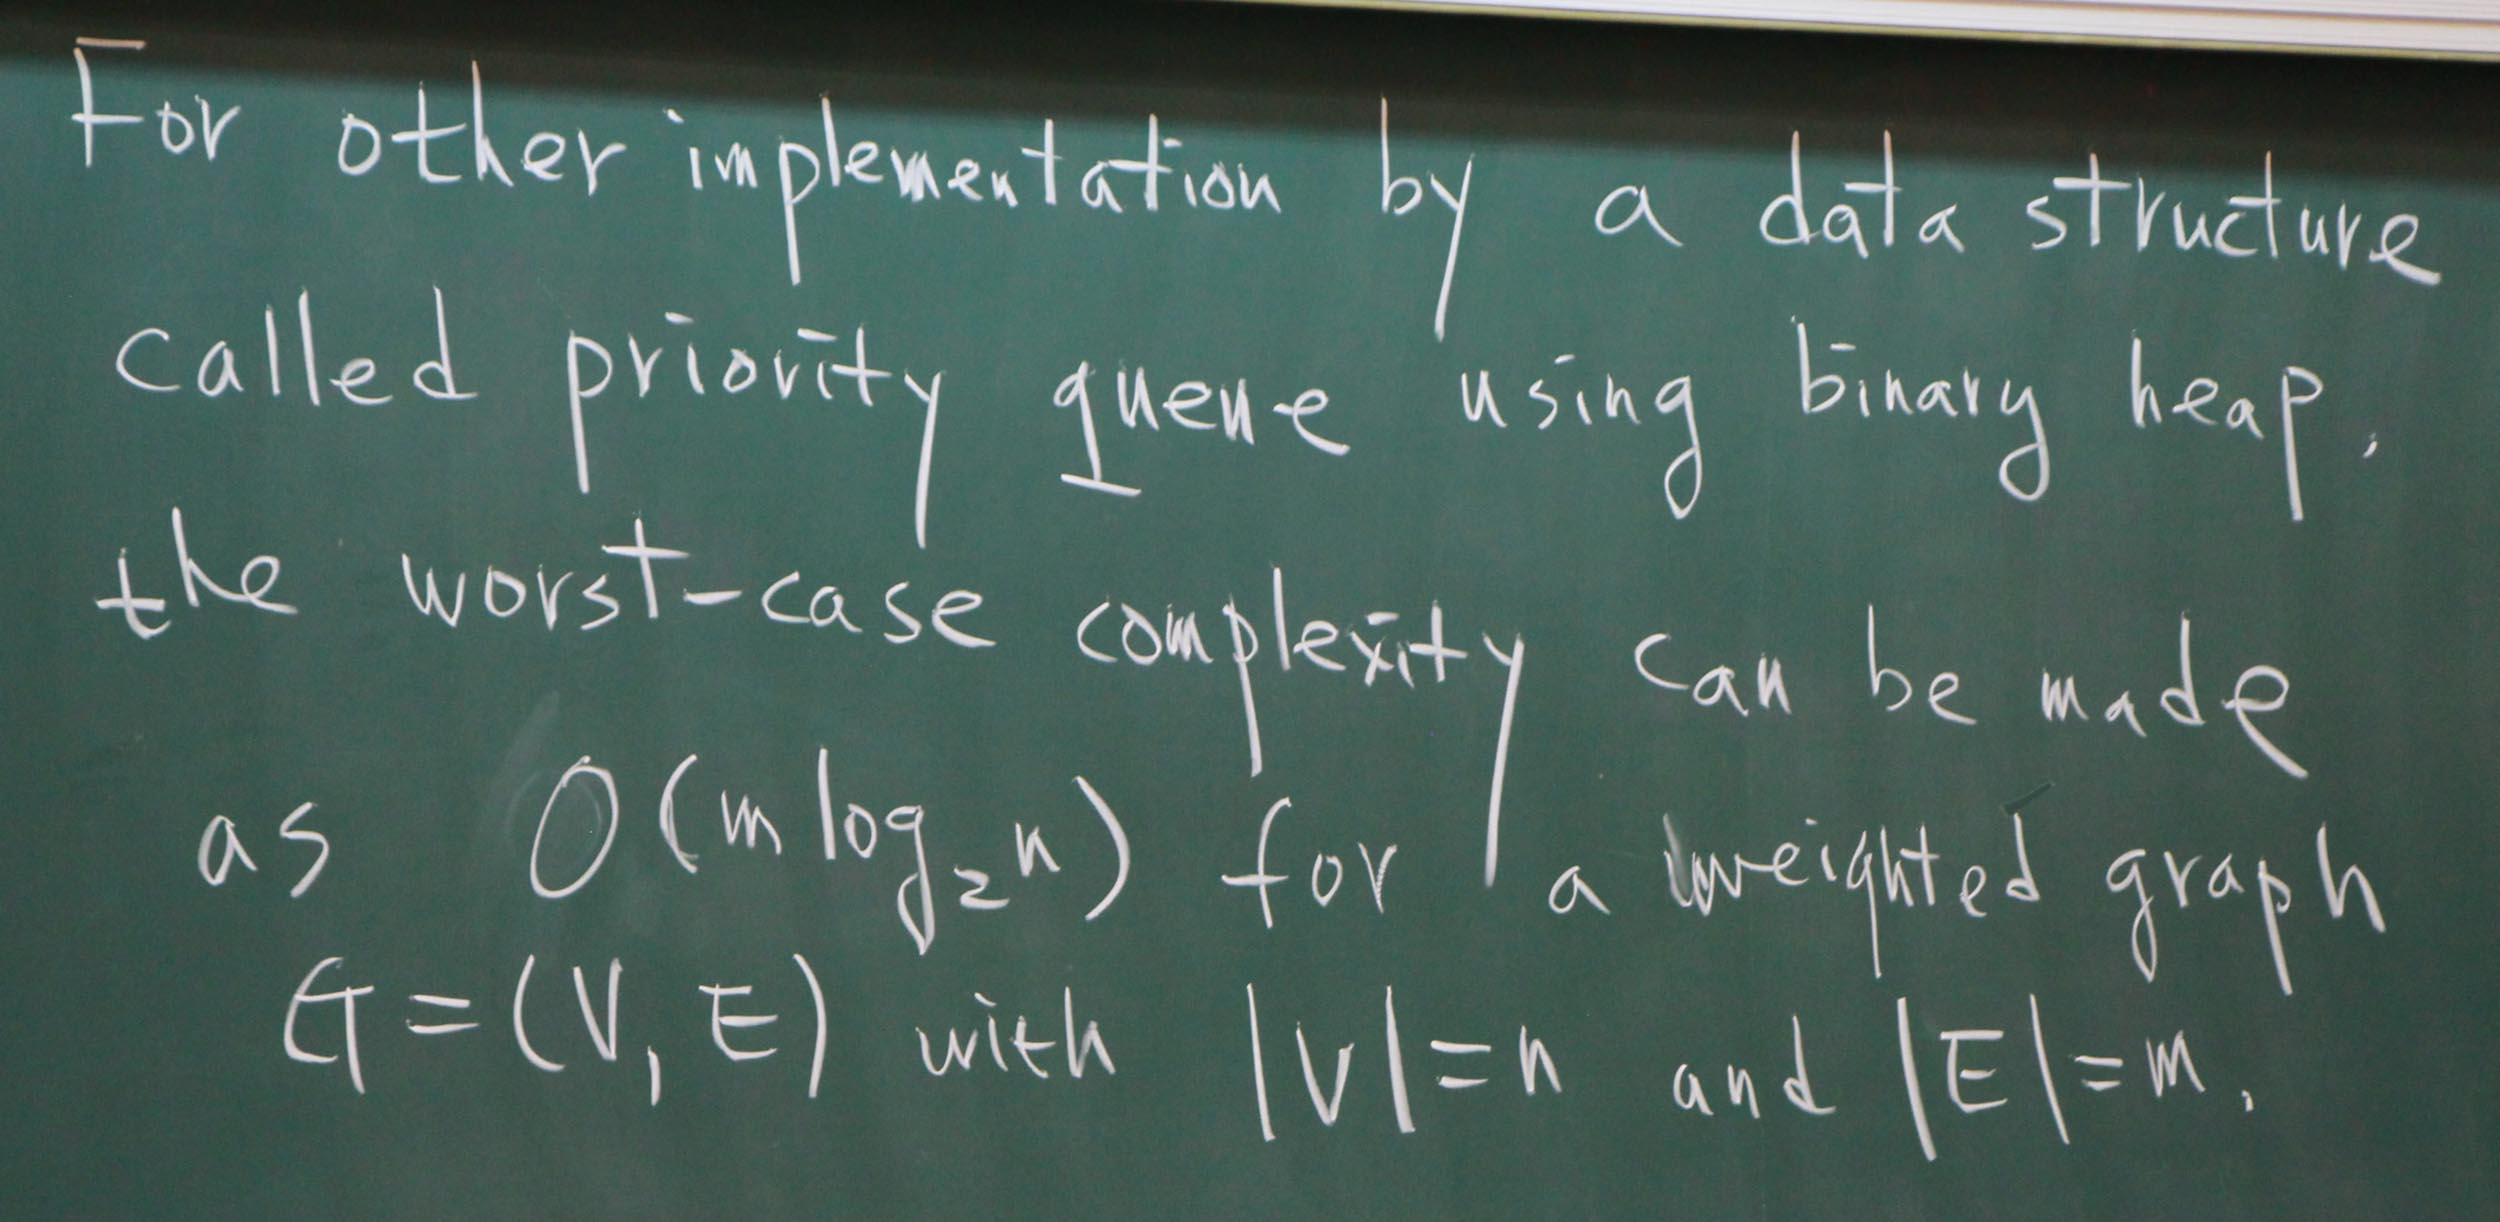 For other implementation by a data structure
called priority queue using binary heap,
the worst-case complexity can be made
as O(m log₂n) for a weighted graph
G=(V,E) with |V|=n and |E|=m.